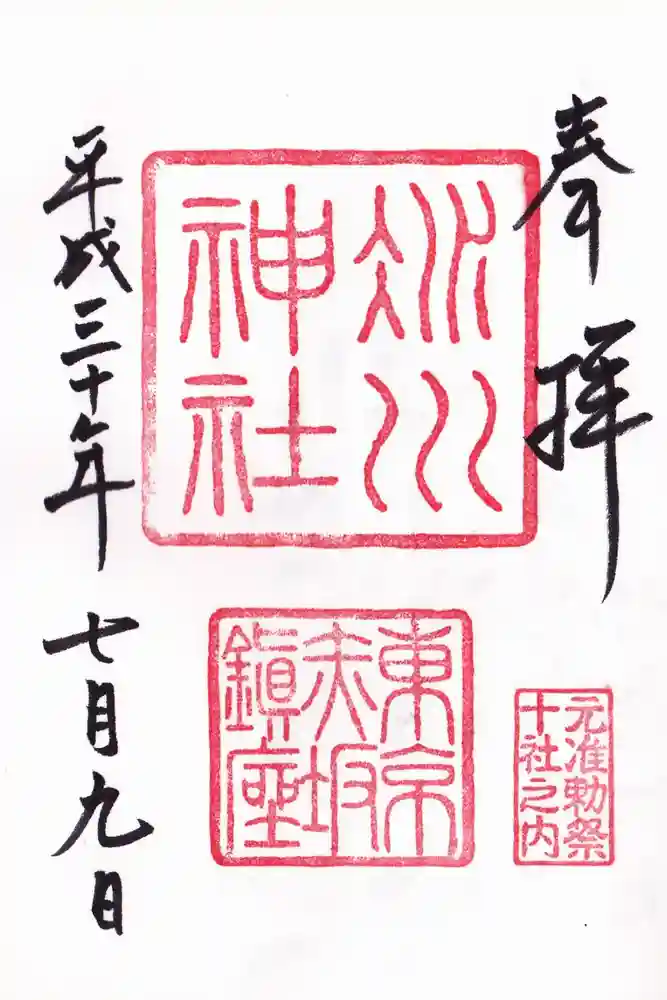 奉拝
氷川
神社
東京
赤坂
鎮座
元准勅祭
十社之内
平成三十年七月九日